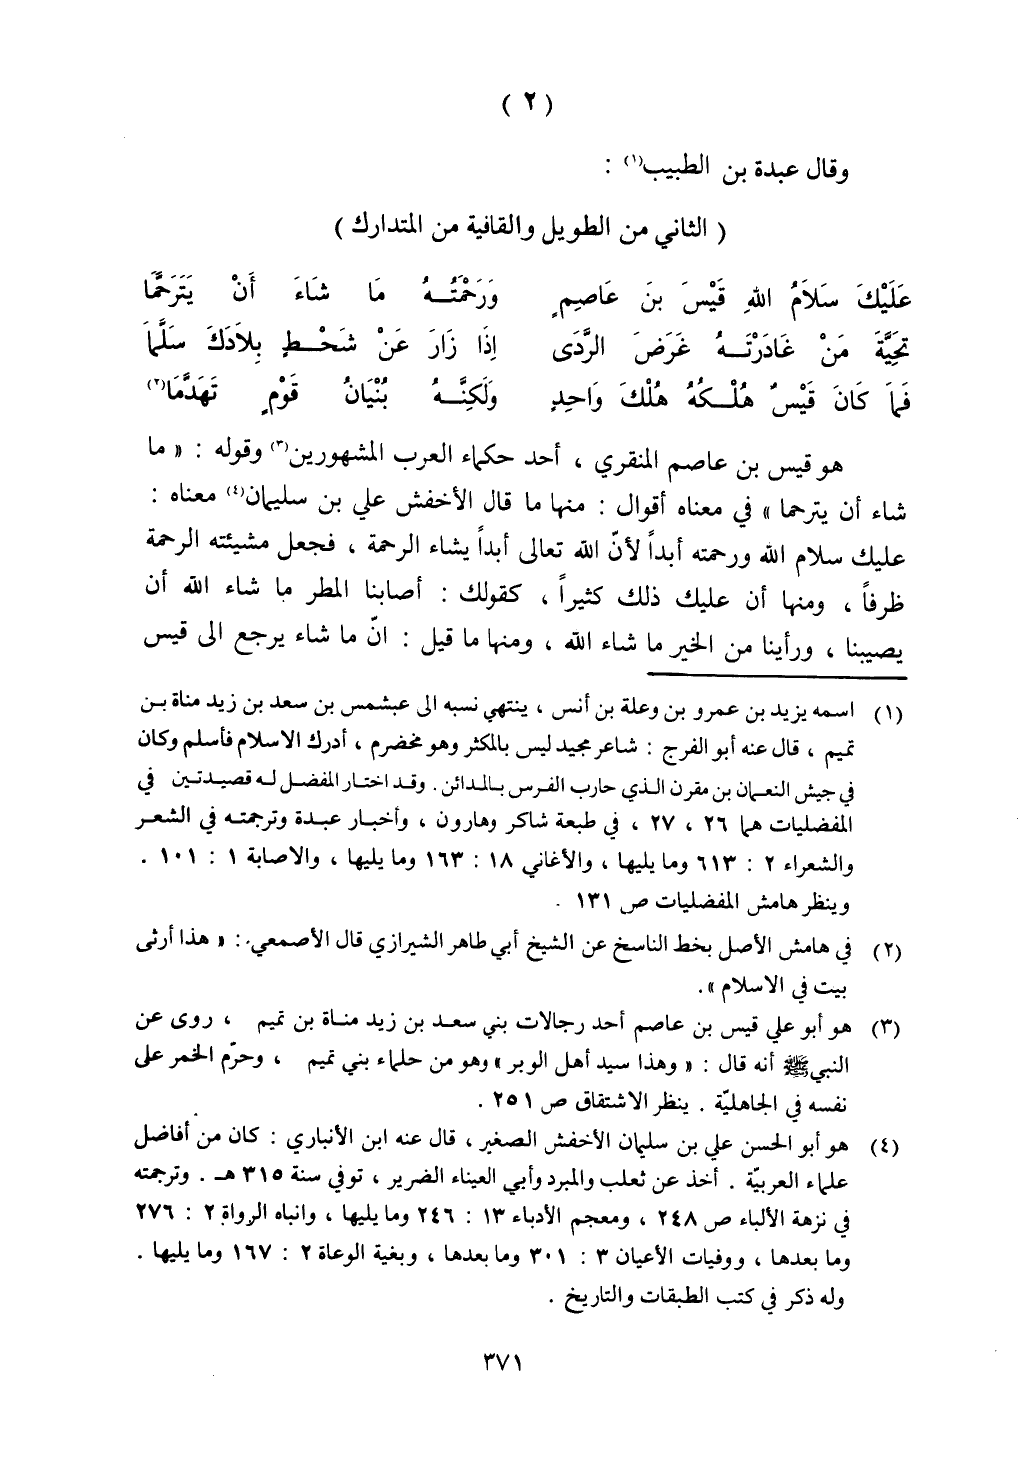 ( ٢ )
وقال عبدة بن الطبيب(١) :
( الثاني من الطويل والقافية من المتدارك )
عَلَيْكَ سَلَامُ اللهِ قَيْسَ بنَ عَاصِمٍ وَرَحْمَتُهُ مَا شَاءَ أَنْ يَتَرَحَّمَا
تَحِيَّةَ مَنْ غَادَرْتَهُ غَرَضَ الرَّدَى إِذَا زَارَ عَنْ شَحْطٍ بِلَادَكَ سَلَّمَا
فَمَا كَانَ قَيْسٌ هُلْكُهُ هُلْكَ وَاحِدٍ وَلَكِنَّهُ بُنْيَانُ قَوْمٍ تَهَدَّمَا(٢)
هو قيس بن عاصم المنقري ، أحد حكماء العرب المشهورين(٣) وقوله : « ما
شاء أن يترحما » في معناه أقوال : منها ما قال الأخفش علي بن سليمان(٤) معناه :
عليك سلام الله ورحمته أبداً لأنّ الله تعالى أبداً يشاء الرحمة ، فجعل مشيئته الرحمة
ظرفاً ، ومنها أن عليك ذلك كثيراً ، كقولك : أصابنا المطر ما شاء الله أن
يصيبنا ، ورأينا من الخير ما شاء الله ، ومنها ما قيل : انّ ما شاء يرجع الى قيس
(١) اسمه يزيد بن عمرو بن وعلة بن أنس ، ينتهي نسبه الى عبشمس بن سعد بن زيد مناة بن
تميم ، قال عنه أبو الفرج : شاعر مجيد ليس بالمكثر وهو مخضرم ، أدرك الاسلام فأسلم وكان
في جيش النعمان بن مقرن الذي حارب الفرس بالمدائن . وقد اختار المفضل له قصيدتين في
المفضليات هما ٢٦ ، ٢٧ ، في طبعة شاكر وهارون ، وأخبار عبدة وترجمته في الشعر
والشعراء ٢ : ٦١٣ وما يليها ، والأغاني ١٨ : ١٦٣ وما يليها ، والاصابة ١ : ١٠١ .
وينظر هامش المفضليات ص ١٣١ .
(٢) في هامش الأصل بخط الناسخ عن الشيخ أبي طاهر الشيرازي قال الأصمعي : « هذا أرثى
بيت في الاسلام ».
(٣) هو أبو علي قيس بن عاصم أحد رجالات بني سعد بن زيد مناة بن تميم ، روى عن
النبي ﷺ أنه قال : « وهذا سيد أهل الوبر » وهو من حلماء بني تميم ، وحرّم الخمر على
نفسه في الجاهليّة . ينظر الاشتقاق ص ٢٥١ .
(٤) هو أبو الحسن علي بن سليمان الأخفش الصغير ، قال عنه ابن الأنباري : كان من أفاضل
علماء العربيّة . أخذ عن ثعلب والمبرد وأبي العيناء الضرير ، توفي سنة ٣١٥ هـ . وترجمته
في نزهة الألباء ص ٢٤٨ ، ومعجم الأدباء ١٣ : ٢٤٦ وما يليها ، وانباه الرواة ٢ : ٢٧٦
وما بعدها ، ووفيات الأعيان ٣ : ٣٠١ وما بعدها ، وبغية الوعاة ٢ : ١٦٧ وما يليها .
وله ذكر في كتب الطبقات والتاريخ .
٣٧١